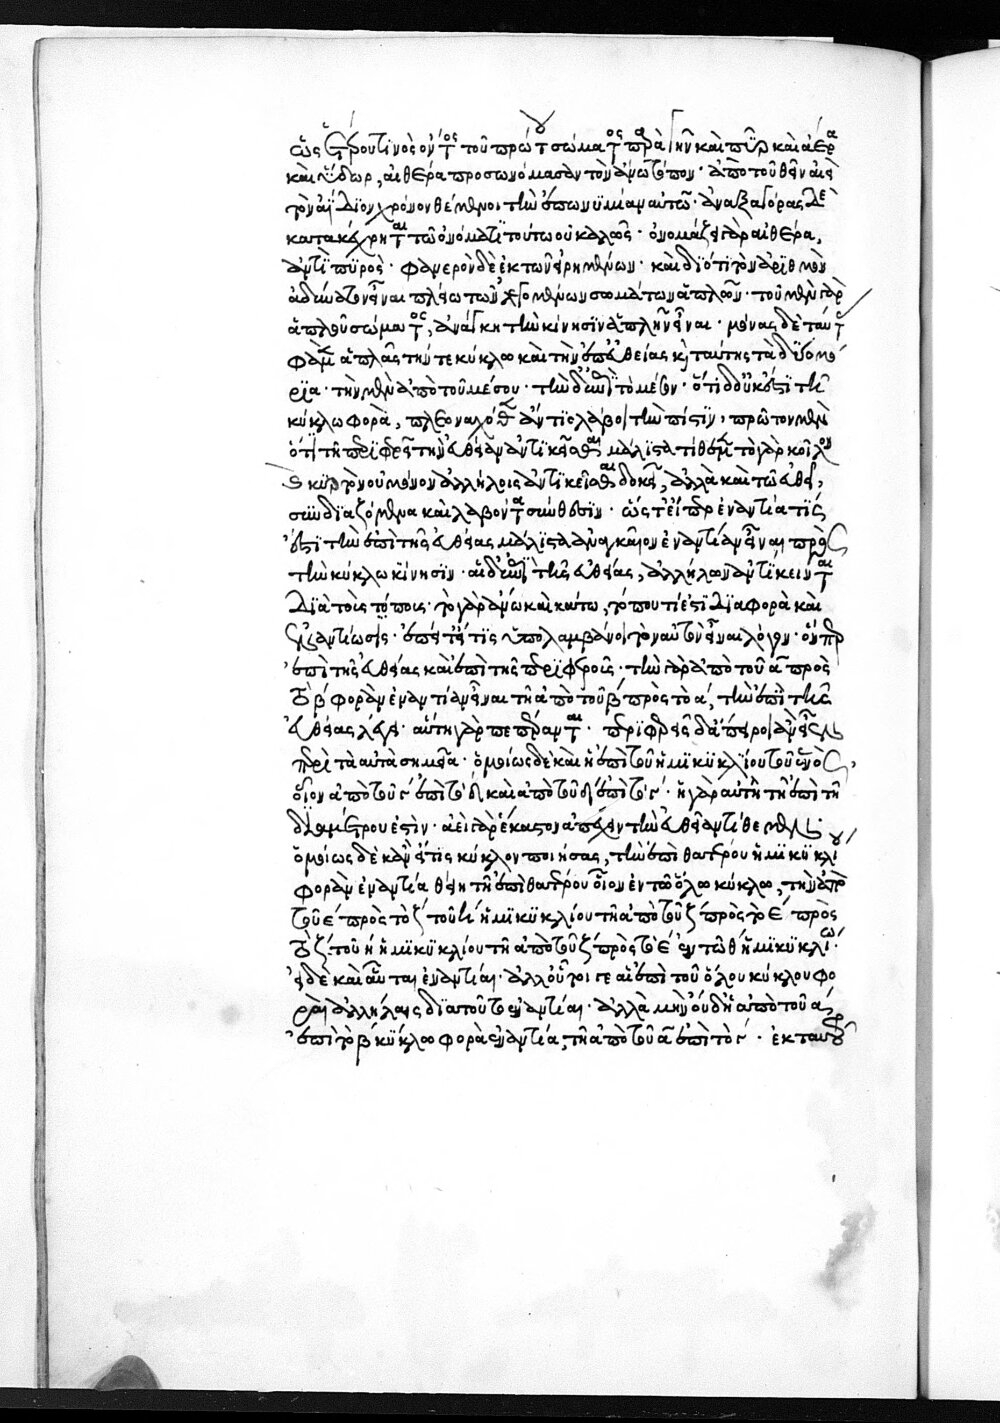 ὡς ἑτέρου τινὸς ὄντος τοῦ πρώτου σώματος παρὰ γῆν καὶ πῦρ καὶ ἀέρα
καὶ ὕδωρ, αἰθέρα προσωνόμασαν τὸν ἀνωτάτω τόπον· ἀπὸ τοῦ θεῖν ἀεὶ
τὸν ἀΐδιον χρόνον θέμενοι τὴν ἐπωνυμίαν αὐτῶ· ἀναξαγόρας δὲ
κατακέχρηται τῶ ὀνόματι τούτω οὐ καλῶς· ὀνομάζει γὰρ αἰθέρα,
ἀντὶ πυρός· φανερὸν δὲ ἐκ τῶν εἰρημένων· καὶ διότι τὸν ἀριθμὸν
ἀδύνατον εἶναι πλείω τῶν λεγομένων σωμάτων ἁπλῶν· τοῦ μὲν γὰρ
ἁπλοῦ σώματος, ἀνάγκη τὴν κίνησιν ἁπλῆν εἶναι· μόνας δὲ ταύτας
φαμὲν ἁπλᾶς τήν τε κύκλω καὶ τὴν ἐπ' εὐθείας καὶ ταύτης τὰ δύο μό
ρια· τὴν μὲν ἀπὸ τοῦ μέσου· τὴν δ' ἐπὶ τὸ μέσον· ὅτι δ' οὐκ ἔστι τῆ
κύκλω φορὰ, πλεοναχόθεν ἄν τις λάβοι τὴν πίστιν, πρῶτον μὲν
ὅτι τῆ περιφερεῖ τὴν εὐθεῖαν ἀντικεῖσθαι μάλιστα τίθεμεν τὸ γὰρ κοῖλον
καὶ κυρτὸν οὐ μόνον ἀλλήλοις ἀντικεῖσθαι δοκεῖ, ἀλλὰ καὶ τῶ εὐθεῖ,
συνδυαζόμενα καὶ λαβόντα σύνθεσιν· ὥστ' εἴπερ ἐναντία τίς
ἐστι τὴν ἐπὶ τῆς εὐθείας μάλιστα ἀναγκαῖον ἐναντίαν εἶναι πρὸς
τὴν κύκλω κίνησιν· αἱ δ' ἐπὶ τῆς εὐθείας, ἀλλήλαις ἀντίκεινται
διὰ τοὺς τόπους· τὸ γὰρ ἄνω καὶ κάτω, τόπου τέ ἐστι διαφορὰ καὶ
ἐναντίωσις· ἔπειτ' εἴ τις ὑπολαμβάνει τὸν αὐτὸν εἶναι λόγον· ὅνπερ
ἐπὶ τῆς εὐθείας καὶ ἐπὶ τῆς περιφεροῦς· τὴν γὰρ ἀπὸ τοῦ α πρὸς
τὸ β φορὰν ἐναντίαν εἶναι τῆ ἀπὸ τοῦ β πρὸς τὸ α, τὴν ἐπὶ τῆς
εὐθείας λέγει· αὕτη γὰρ πεπέρανται· περιφερεῖς δ' ἄπειροι ἂν εἶεν
περὶ τὰ αὐτὰ σημεῖα· ὁμοίως δὲ καὶ ἡ ἐπὶ τοῦ ἡμικυκλίου τοῦ ἑνὸς,
οἷον ἀπὸ τοῦ γ ἐπὶ τὸ δ καὶ ἀπὸ τοῦ δ ἐπὶ τὸ γ· ἡ γὰρ αὐτὴ τῆ ἐπὶ τῆ
διαμέτρου ἐστὶν· ἀεὶ γὰρ ἕκαστον ἀπέχειν τὴν εὐθεῖαν τίθεμεν·
ὁμοίως δὲ κἂν εἴ τις κύκλον ποιήσας, τὴν ἐπὶ θατέρου ἡμικυκλίου
φορὰν ἐναντία θείη τῆ ἐπὶ θατέρου οἷον ἐν τῶ ὅλω κύκλω, τὴν ἀπὸ
τοῦ ε πρὸς τὸ ζ τοῦ ἡμικυκλίου τῆ ἀπὸ τοῦ ζ πρὸς τὸ ε πρὸς
τὸ ζ τοῦ η ἡμικυκλίου τῆ ἀπὸ τοῦ ζ πρὸς τὸ ε ἐν τῶ θ ἡμικυκλίω·
εἰ δὲ καὶ αὗται ἐναντίαι· ἀλλ' οὔτοι γε αἱ ἐπὶ τοῦ ὅλου κύκλου φο
ραὶ ἀλλήλαις διὰ τοῦτο ἐναντίαι· ἀλλὰ μὴν οὐδ' ἡ ἀπὸ τοῦ α
ἐπὶ τὸ β κύκλω φορὰ ἐναντία, τῆ ἀπὸ τοῦ α ἐπὶ τὸ γ· ἐκ ταυτοῦ